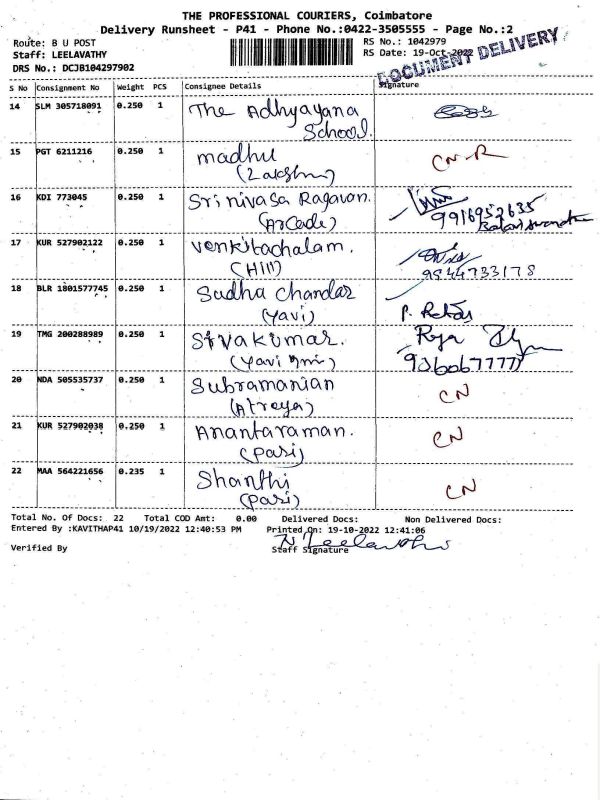 THE PROFESSIONAL COURIERS, Coimbatore
Delivery Runsheet - P41 - Phone No.:0422-3505555 - Page No.:2
Route: B U POST RS No.: 1042979
Staff: LEELAVATHY RS Date: 19-Oct-2022
DRS No.: DCJB104297902
DOCUMENT DELIVERY
S No Consignment No Weight PCS Consignee Details Signature
14 SLM 305718091 0.250 1 The Adhyayana
School.
15 PGT 6211216 0.250 1 madhu CN-R
(Lakshmi)
16 KDI 773045 0.250 1 Srinivasa Ragavan.
(Arcade) 9916952635
17 KUR 527902122 0.250 1 Venkitachalam.
(Hill) 9544733178
18 BLR 1801577745 0.250 1 Sudha Chandar
(Yavi) P.
19 TMG 200288989 0.250 1 Sivakumar. Roja
(Yavi
20 NDA 505535737 0.250 1 Subramanian CN
(Atreya)
21 KUR 527902038 0.250 1 Anantaraman. CN
(Pari)
22 MAA 564221656 0.235 1 Shanthi CN
(Pari)
Total No. Of Docs: 22 Total COD Amt: 0.00 Delivered Docs: Non Delivered Docs:
Entered By :KAVITHAP41 10/19/2022 12:40:53 PM Printed On: 19-10-2022 12:41:06
N Leelavathi
Verified By Staff Signature